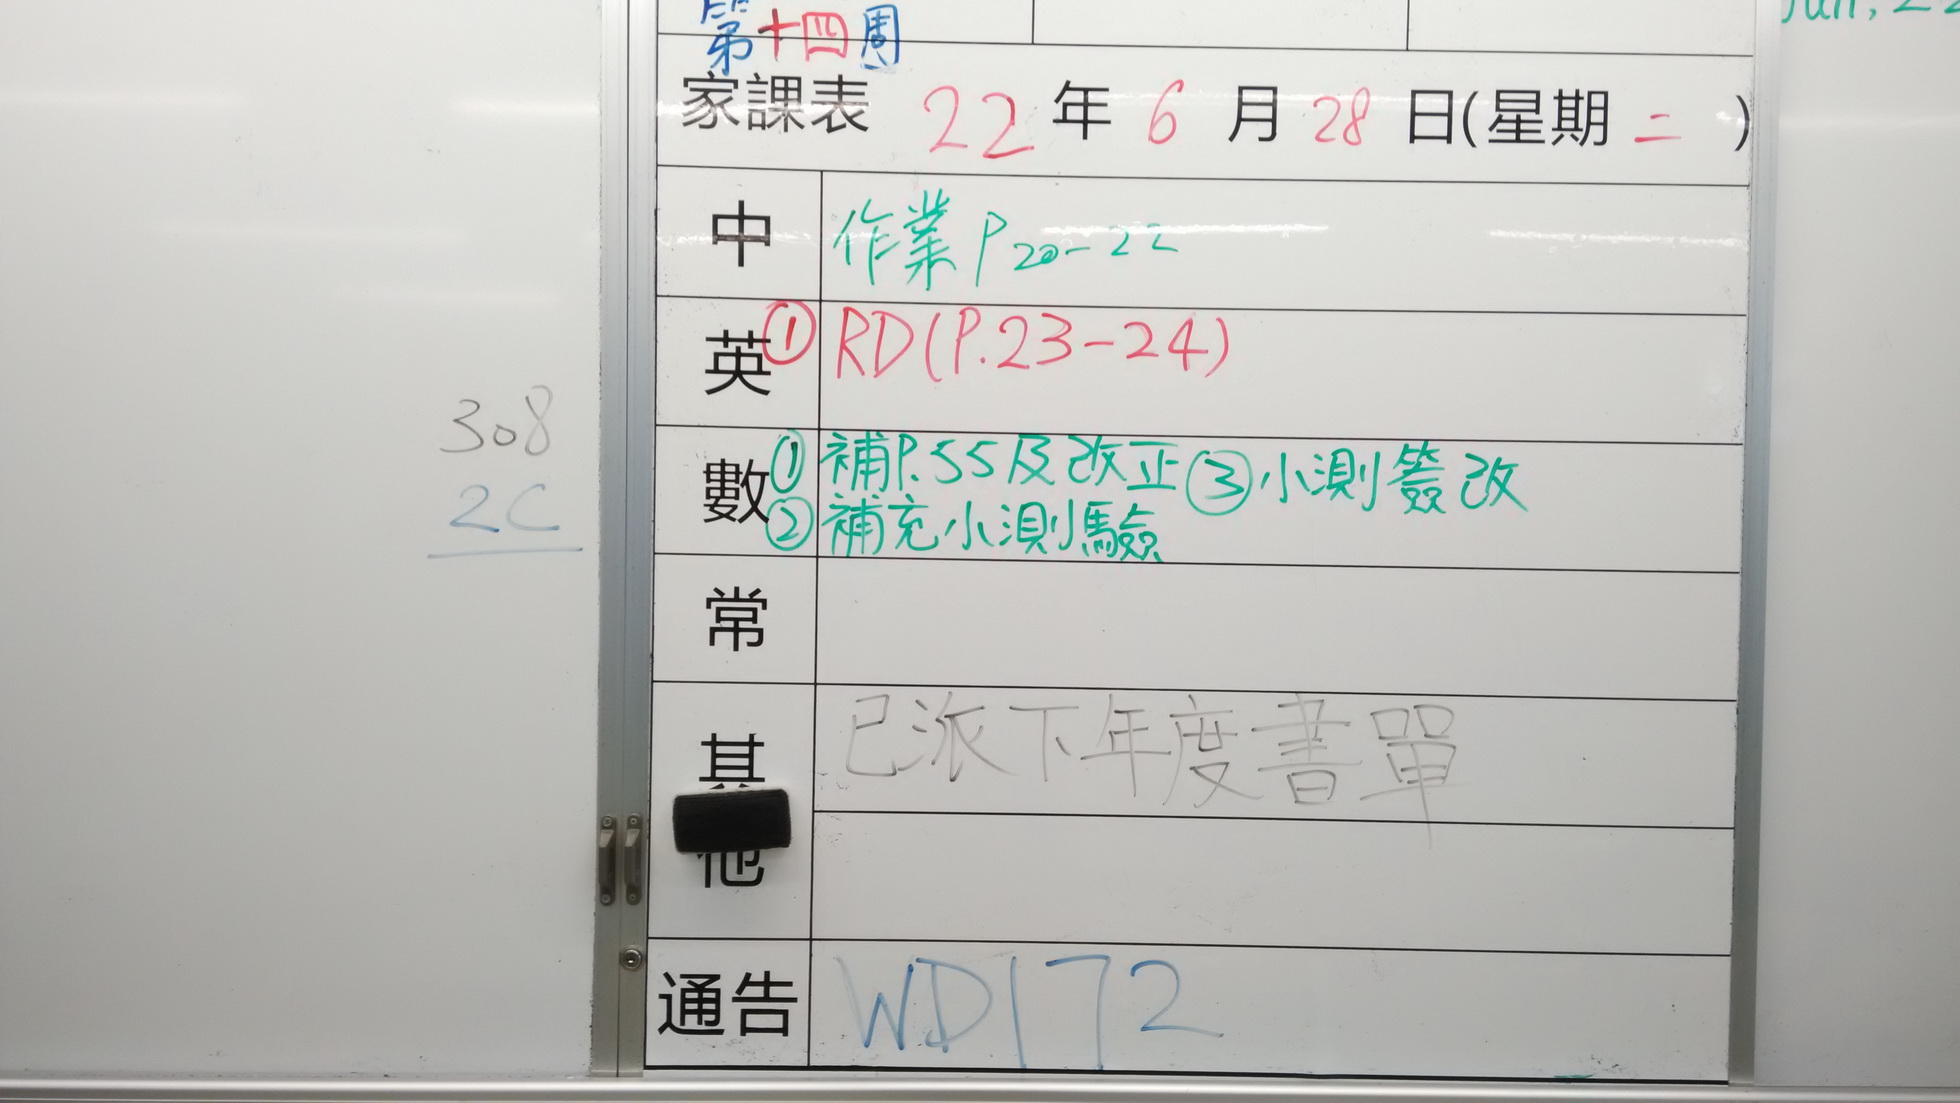 第十四周
家課表 22年6月28日(星期二)
中 作業P20-22
英 ①RD(P.23-24)
數 ①補P.55及改正③小測簽改
②補充小測驗
常
其他 已派下年度書單
通告 WD172
308
2C